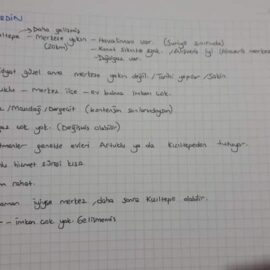 RDİN
→ Daha gelişmiş
ıltepe → Merkeze yakın - Havalimanı var. (Suriye sınırında)
(20km) - Kanal sıkıntısı
- Doğalgaz var.
iyat güzel ama merkeze yakın değil. Tarihi yapılar / Sakin
uklu - Merkez ilçe - ev bulma imkanı çok.
/ Mandağ / Dargeçit (kentin
az çok yok. (Değişmiş olabilir)
etmenler genelde evleri Artuklu ya da Kızıltepeden tutuyor.
hizmet süresi kısa.
m rahat.
aman iyiyse merkez, daha sonra Kızıltepe olabilir.
- - imkan çok yok. Gelişmemiş